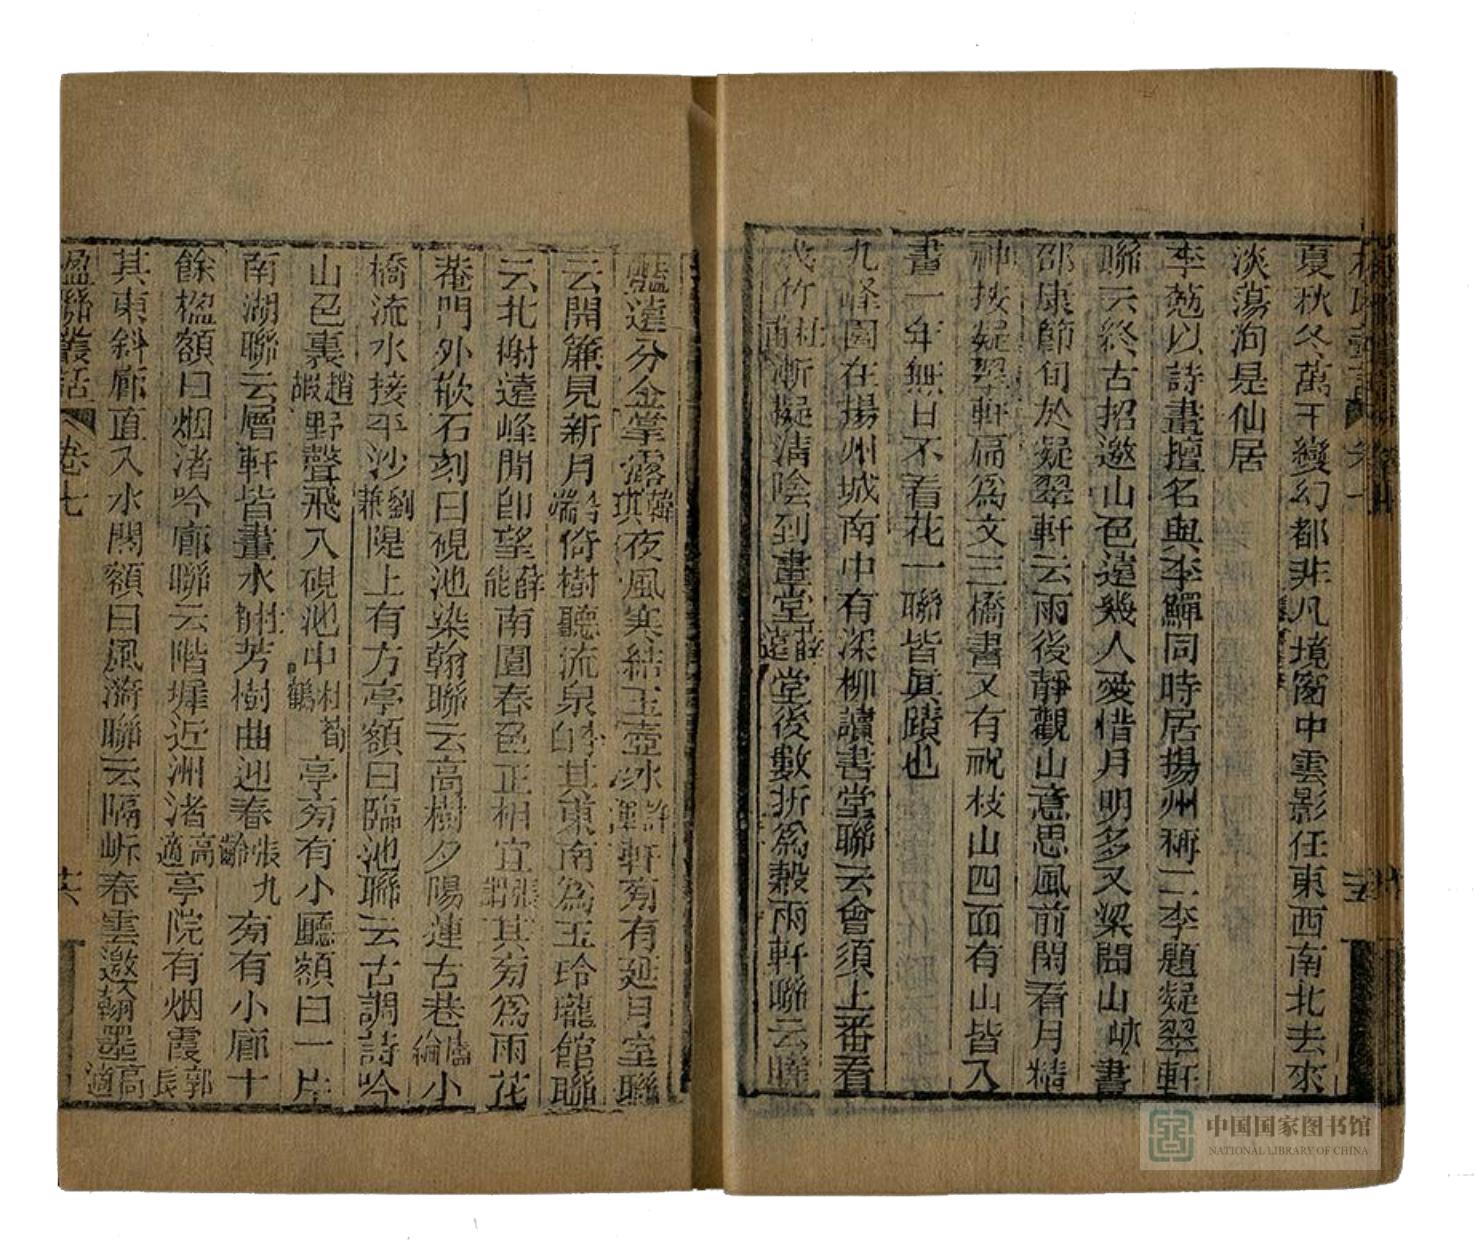 夏秋冬萬千變幻都非凡境窗中雲影任東西南北去來
淡蕩洵是仙居
李葂以詩畫擅名與李鱓同時居揚州稱二李題凝翠軒
聯云終古招邀山色遠幾人愛惜月明多又梁聞山巘書
邵康節句於凝翠軒云雨後靜觀山意思風前閒看月精
神按凝翠軒扁為文三橋書又有祝枝山四面有山皆入
畫一年無日不看花一聯皆真蹟也
九峰園在揚州城南中有深柳讀書堂聯云會須上番看
成竹杜甫漸擬清陰到畫堂薛逢堂後數折為穀雨軒聯云曉
艷遠分金掌露韓琪夜風寒結玉壺冰許渾軒旁有延月室聯
云開簾見新月倚樹聽流泉其東南為玉玲瓏館聯
云北榭遠峰閒即望薛能南園春色正相宜張謂其旁為雨花
菴門外欹石刻曰硯池染翰聯云高樹夕陽蓮古巷盧綸小
橋流水接平沙劉兼隄上有方亭額曰臨池聯云古調詩吟
山色裏趙嘏野聲飛入硯池中杜荀鶴亭旁有小廳額曰一片
南湖聯云層軒皆畫水杜甫芳樹曲迎春張九齡旁有小廊十
餘楹額曰烟渚吟廊聯云階墀近洲渚高適亭院有烟霞郭良
其東斜廊直入水閣額曰風漪聯云隔岍春雲邀翰墨高適
楹聯叢話
卷七
共
中国国家图书馆
NATIONAL LIBRARY OF CHINA